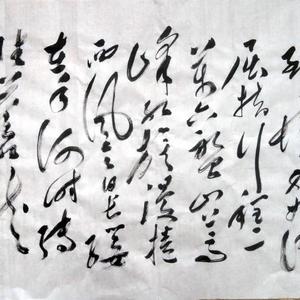 非好汉
屈指行程二
萬六盤山上高
峰紅旗漫捲
西風今日長纓
在手何時縛
住蒼龍